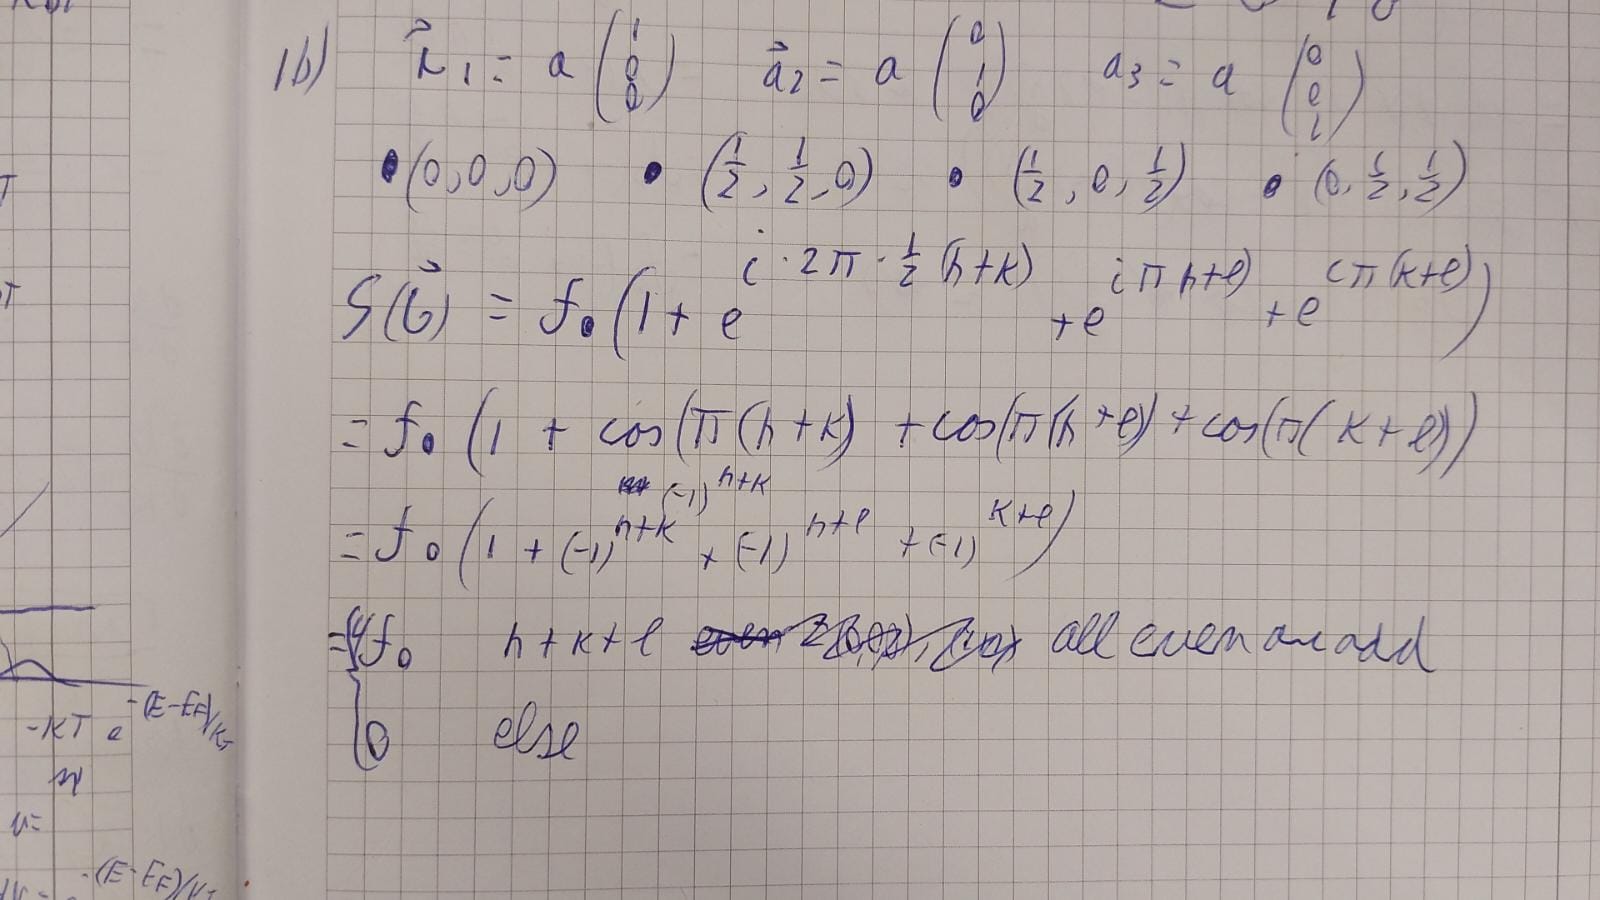 1b) r⃗1 = a (1 0 0) a⃗2 = a (0 1 0) a3 = a (0 0 1)
• (0,0,0) • (1/2, 1/2, 0) • (1/2, 0, 1/2) • (0, 1/2, 1/2)
S(G⃗) = f0 (1 + e^(i·2π·1/2(h+k)) + e^(iπ h+l) + e^(iπ(k+l)))
= f0 (1 + cos(π(h+k) + cos(π(h+l) + cos(π(k+l))
(-1)^(h+k)
= f0 (1 + (-1)^(h+k) + (-1)^(h+l) + (-1)^(k+l))
= { 4f0 h+k+l all even or odd
0 else
-kT e^(-(E-EF)/kT
v=
-(E-EF)/kT